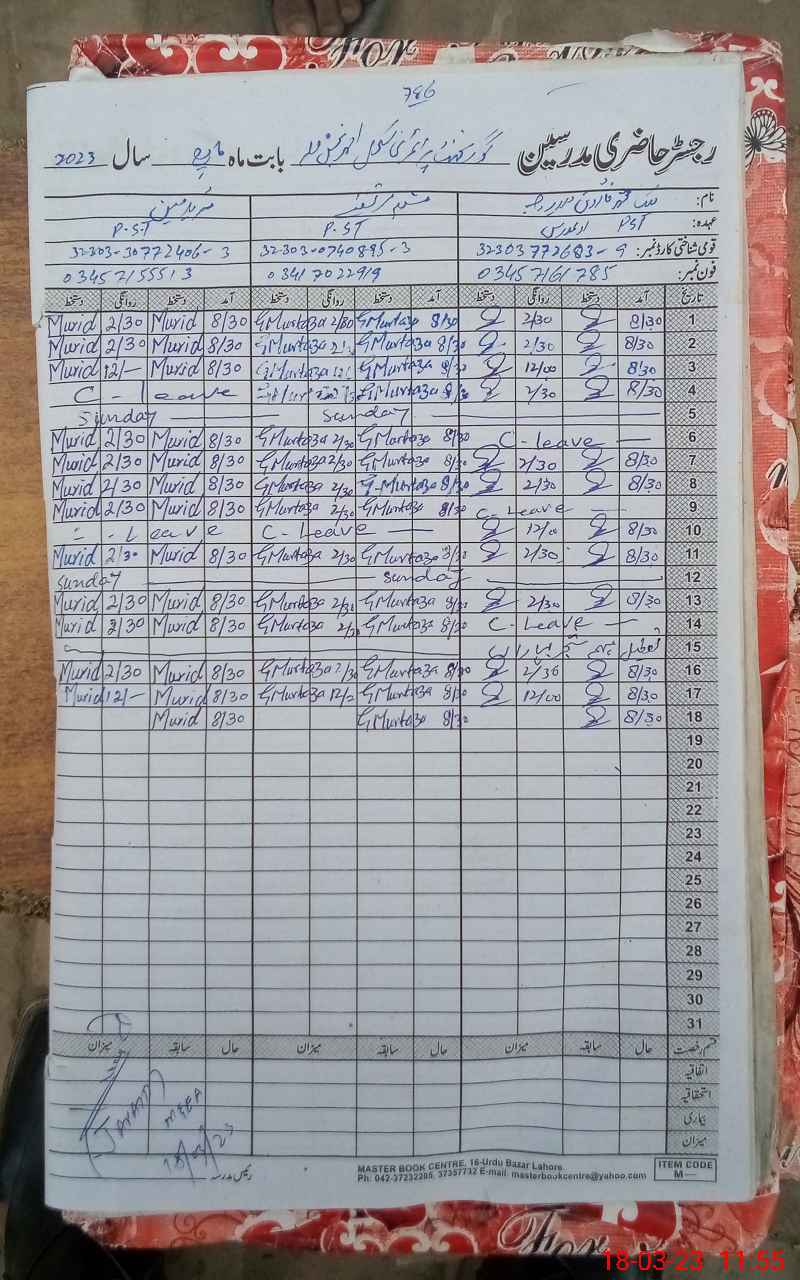 786
رجسٹر حاضری مدرسین گورنمنٹ پرائمری سکول بابت ماہ مارچ سال 2023
نام:
عہدہ: PST P.ST P.ST
قومی شناختی کارڈ نمبر: 32303772683-9 32303-0740895-3 32303-30772406-3
فون نمبر: 03457161785 03417022919 03457155513
تاریخ آمد دستخط روانگی دستخط آمد دستخط روانگی دستخط آمد دستخط روانگی دستخط
1 8/30 2/30 8/30 GMurtaza 2/30 GMurtaza 8/30 Murid 2/30 Murid
2 8/30 2/30 8/30 GMurtaza GMurtaza 8/30 Murid 2/30 Murid
3 8/30 12/00 8/30 GMurtaza GMurtaza 8/30 Murid 12/- Murid
4 8/30 2/30 8/30 GMurtaza C - leave
5 Sunday Sunday
6 C-leave 8/30 GMurtaza 2/30 GMurtaza 8/30 Murid 2/30 Murid
7 8/30 2/30 8/30 GMurtaza 2/30 GMurtaza 8/30 Murid 2/30 Murid
8 8/30 2/30 8/30 G.Murtaza 2/30 GMurtaza 8/30 Murid 2/30 Murid
9 C-Leave 8/30 GMurtaza 2/30 GMurtaza 8/30 Murid 2/30 Murid
10 8/30 12/00 C-Leave C-Leave
11 8/30 2/30 8/30 GMurtaza 2/30 GMurtaza 8/30 Murid 2/30 Murid
12 Sunday Sunday
13 8/30 2/30 8/30 GMurtaza 2/30 GMurtaza 8/30 Murid 2/30 Murid
14 C-Leave 8/30 GMurtaza 2/30 GMurtaza 8/30 Murid 2/30 Murid
15 تعطیل
16 8/30 2/30 8/30 GMurtaza 2/30 GMurtaza 8/30 Murid 2/30 Murid
17 8/30 12/00 8/30 GMurtaza GMurtaza 8/30 Murid 12/- Murid
18 8/30 8/30 GMurtaza 8/30 Murid
19
20
21
22
23
24
25
26
27
28
29
30
31
قسم رخصت حال سابقہ میزان حال سابقہ میزان حال سابقہ میزان
اتفاقیہ
استحقاقیہ
بیماری
میزان
18/03/23
رئیس مدرسہ
MASTER BOOK CENTRE, 16-Urdu Bazar Lahore.
Ph: 042-37232205, 37357732 E-mail: masterbookcentre@yahoo.com
ITEM CODE
M—
18-03-23 11:55